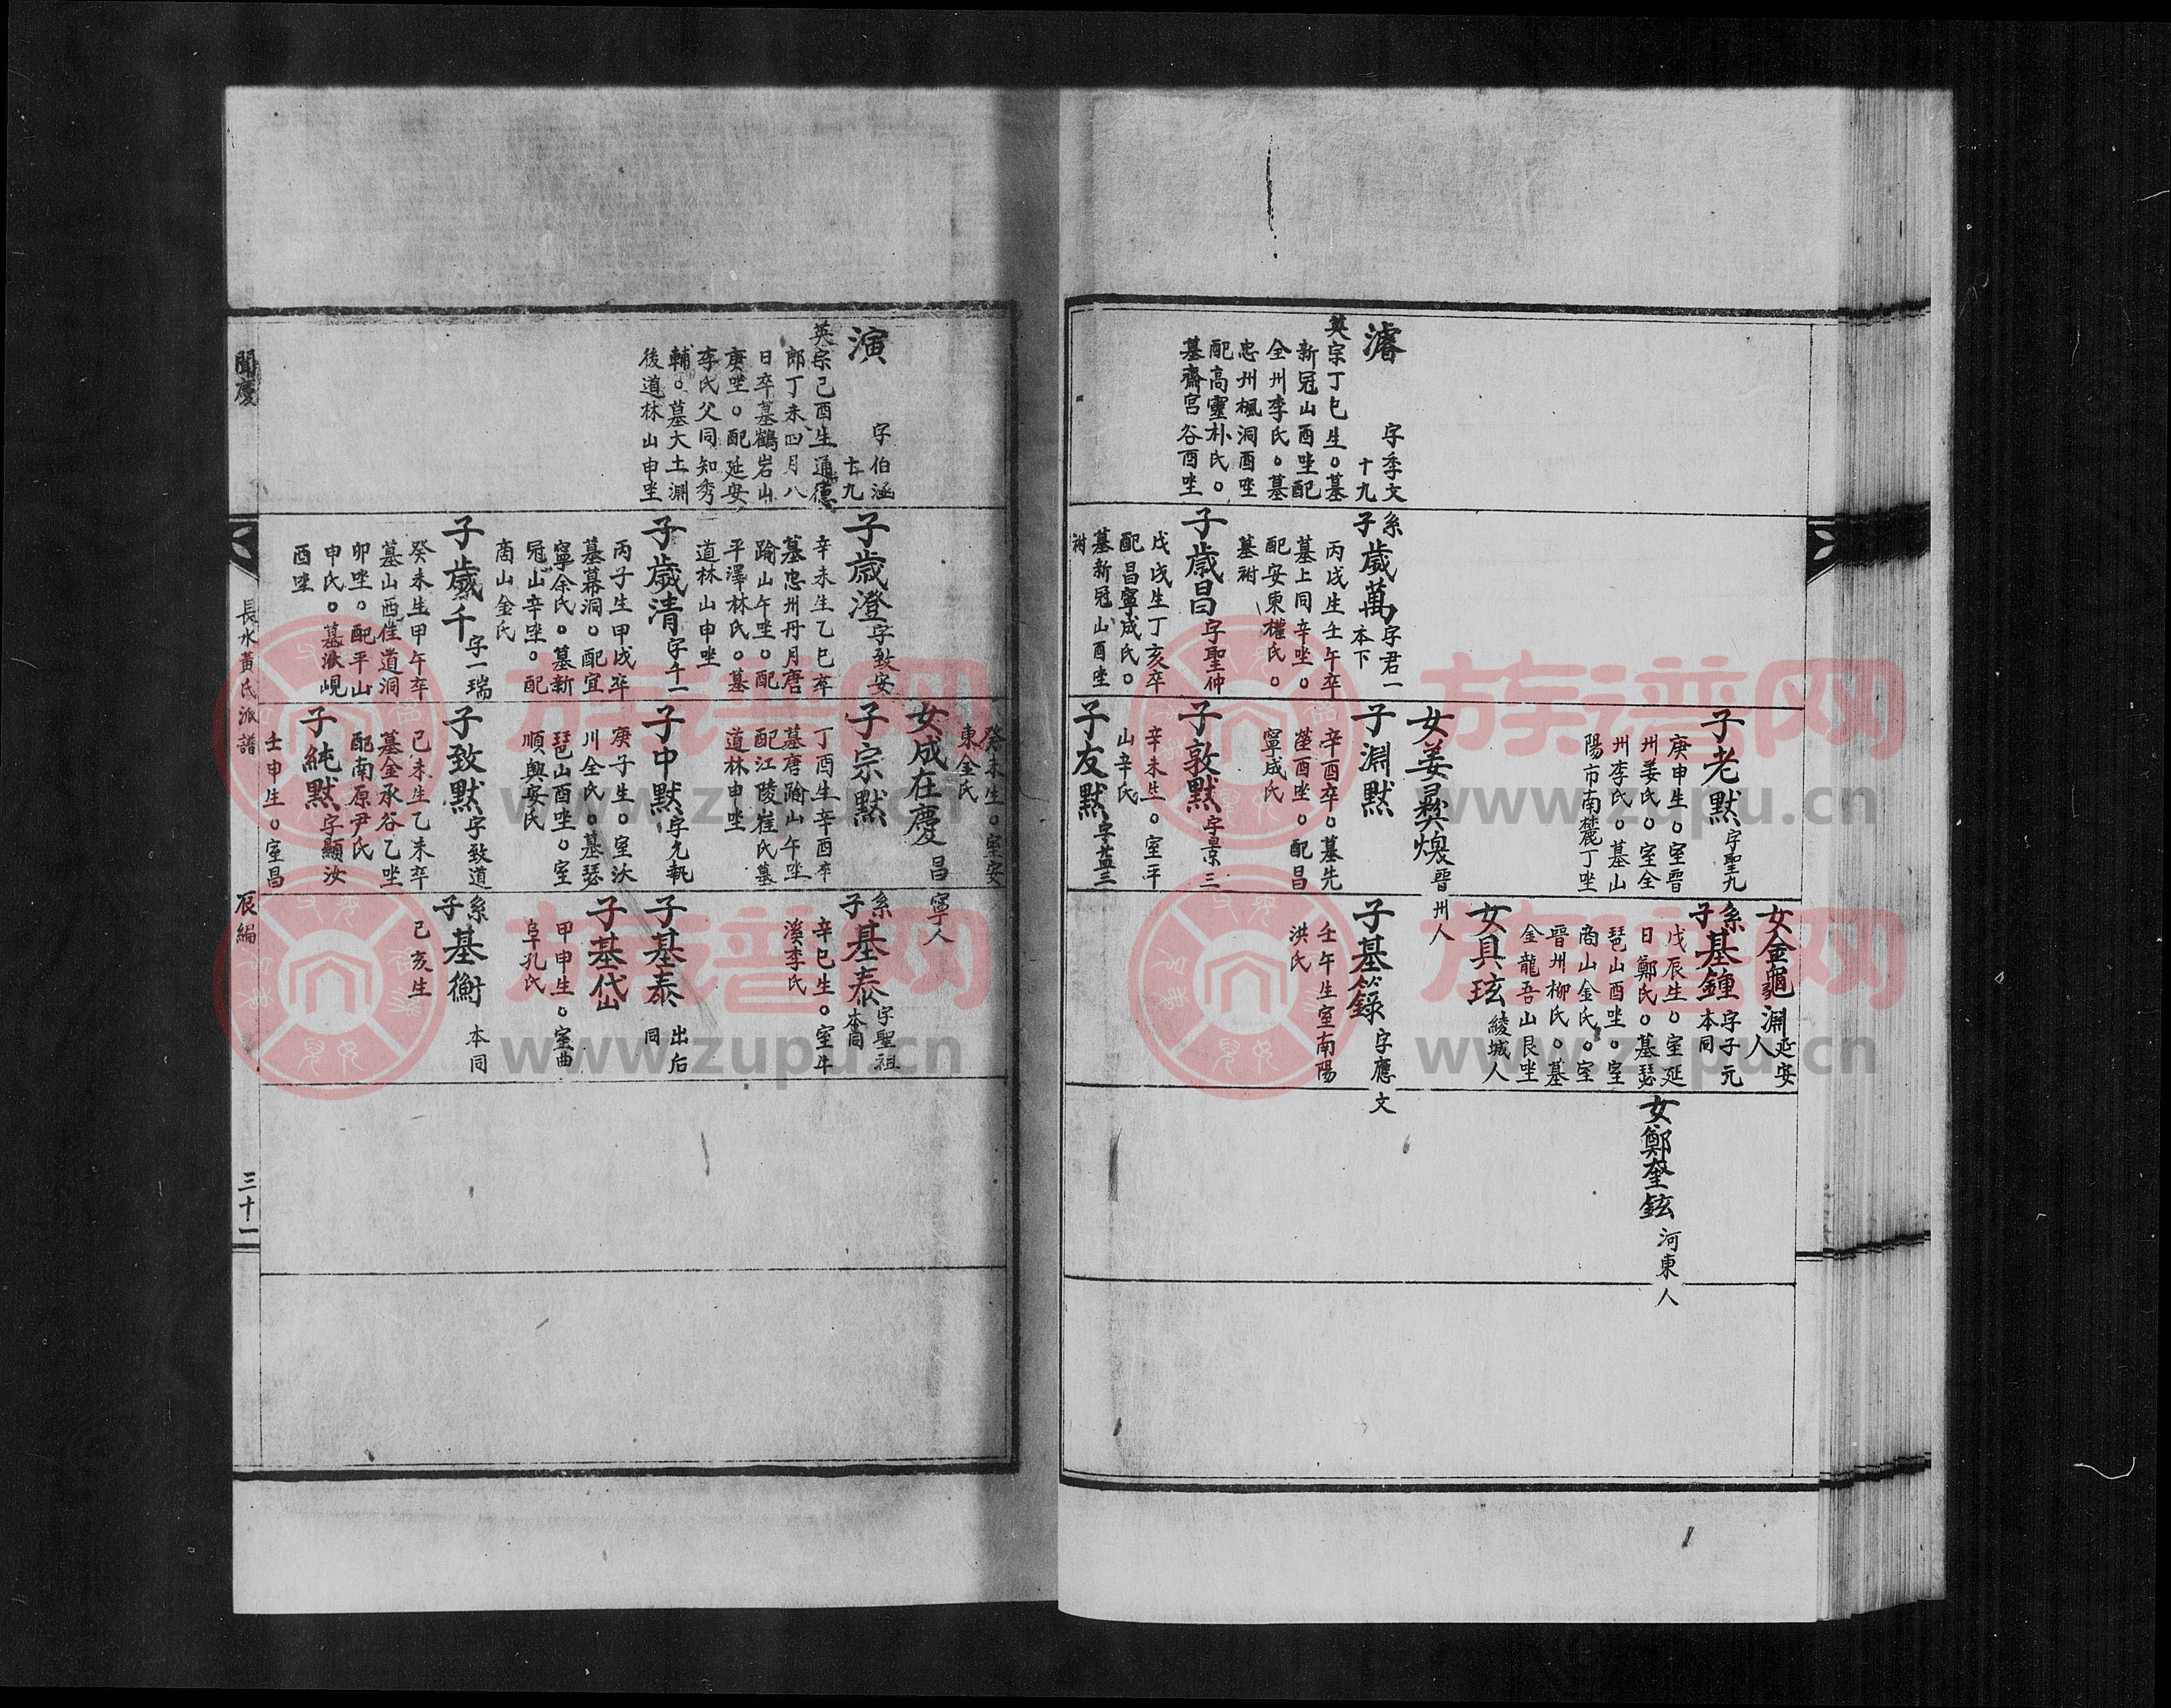 濬
字季文
十九
英宗丁巳生○墓
新冠山酉坐配
全州李氏○墓
忠州楓洞酉坐
配高靈朴氏○
墓齋宮谷酉坐
系
子歲萬
字君一
本下
丙戌生壬午卒
墓上同辛坐○
配安東權氏○
墓祔
子歲昌
字聖仲
戊戌生丁亥卒
配昌寧成氏○
墓新冠山酉坐
祔
子老默
字聖九
庚申生○室晋
州姜氏○室全
州李氏○墓山
陽市南麓丁坐
女姜彛煥
晋州人
子淵默
辛酉卒○墓先
塋酉坐○配昌
寧成氏
子敦默
字景三
辛未生○室平
山辛氏
子友默
字益三
女金龜淵
延安
人
系
子基鍾
字子元
本同
戊辰生○室延
日鄭氏○墓瑟
琶山酉坐○室
商山金氏○室
晋州柳氏○墓
金龍吾山艮坐
女具玹
綾城人
子基籙
字應文
壬午生室南陽
洪氏
女鄭奎鉉
河東人
演
字伯涵
十九
英宗己酉生通德
郎丁未四月八
日卒墓鶴岩山
庚坐○配延安
李氏父同知秀
輔○墓大土淵
後道林山申坐
子歲澄
字致安
辛未生乙巳卒
墓忠州丹月唐
踰山午坐○配
平澤林氏○墓
道林山申坐
子歲清
字千一
丙子生甲戌卒
墓幕洞○配宜
寧余氏○墓新
冠山辛坐○配
商山金氏
子歲千
字一瑞
癸未生甲午卒
墓山西佳道洞
卯坐○配平山
申氏○墓峴
酉坐
癸未生○室安
東金氏
女成在慶
昌寧人
子宗默
丁酉生辛酉卒
墓唐踰山午坐
配江陵崔氏墓
道林申坐
子中默
字允執
庚子生○室沃
川全氏○墓瑟
琶山酉坐○室
順興安氏
子致默
字致道
己未生乙未卒
墓金承谷乙坐
配南原尹氏
子純默
字顯汝
壬申生○室昌
系
子基泰
字聖祖
本同
辛巳生○室牛
溪李氏
子基泰
出后
同
子基岱
甲申生○室曲
阜孔氏
系
子基衡
本同
己亥生
聞慶
長水黃氏派譜
辰編
三十一
族譜网
www.zupu.cn
族譜网
www.zupu.cn
族譜网
www.zupu.cn
族譜网
www.zupu.cn